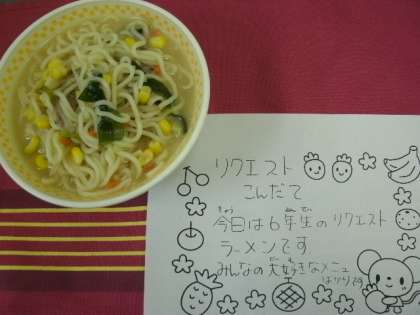 リクエスト
こんだて
今日は6年生のリクエスト
ラーメンです
みんなの大好きなメニュー
ばかりです